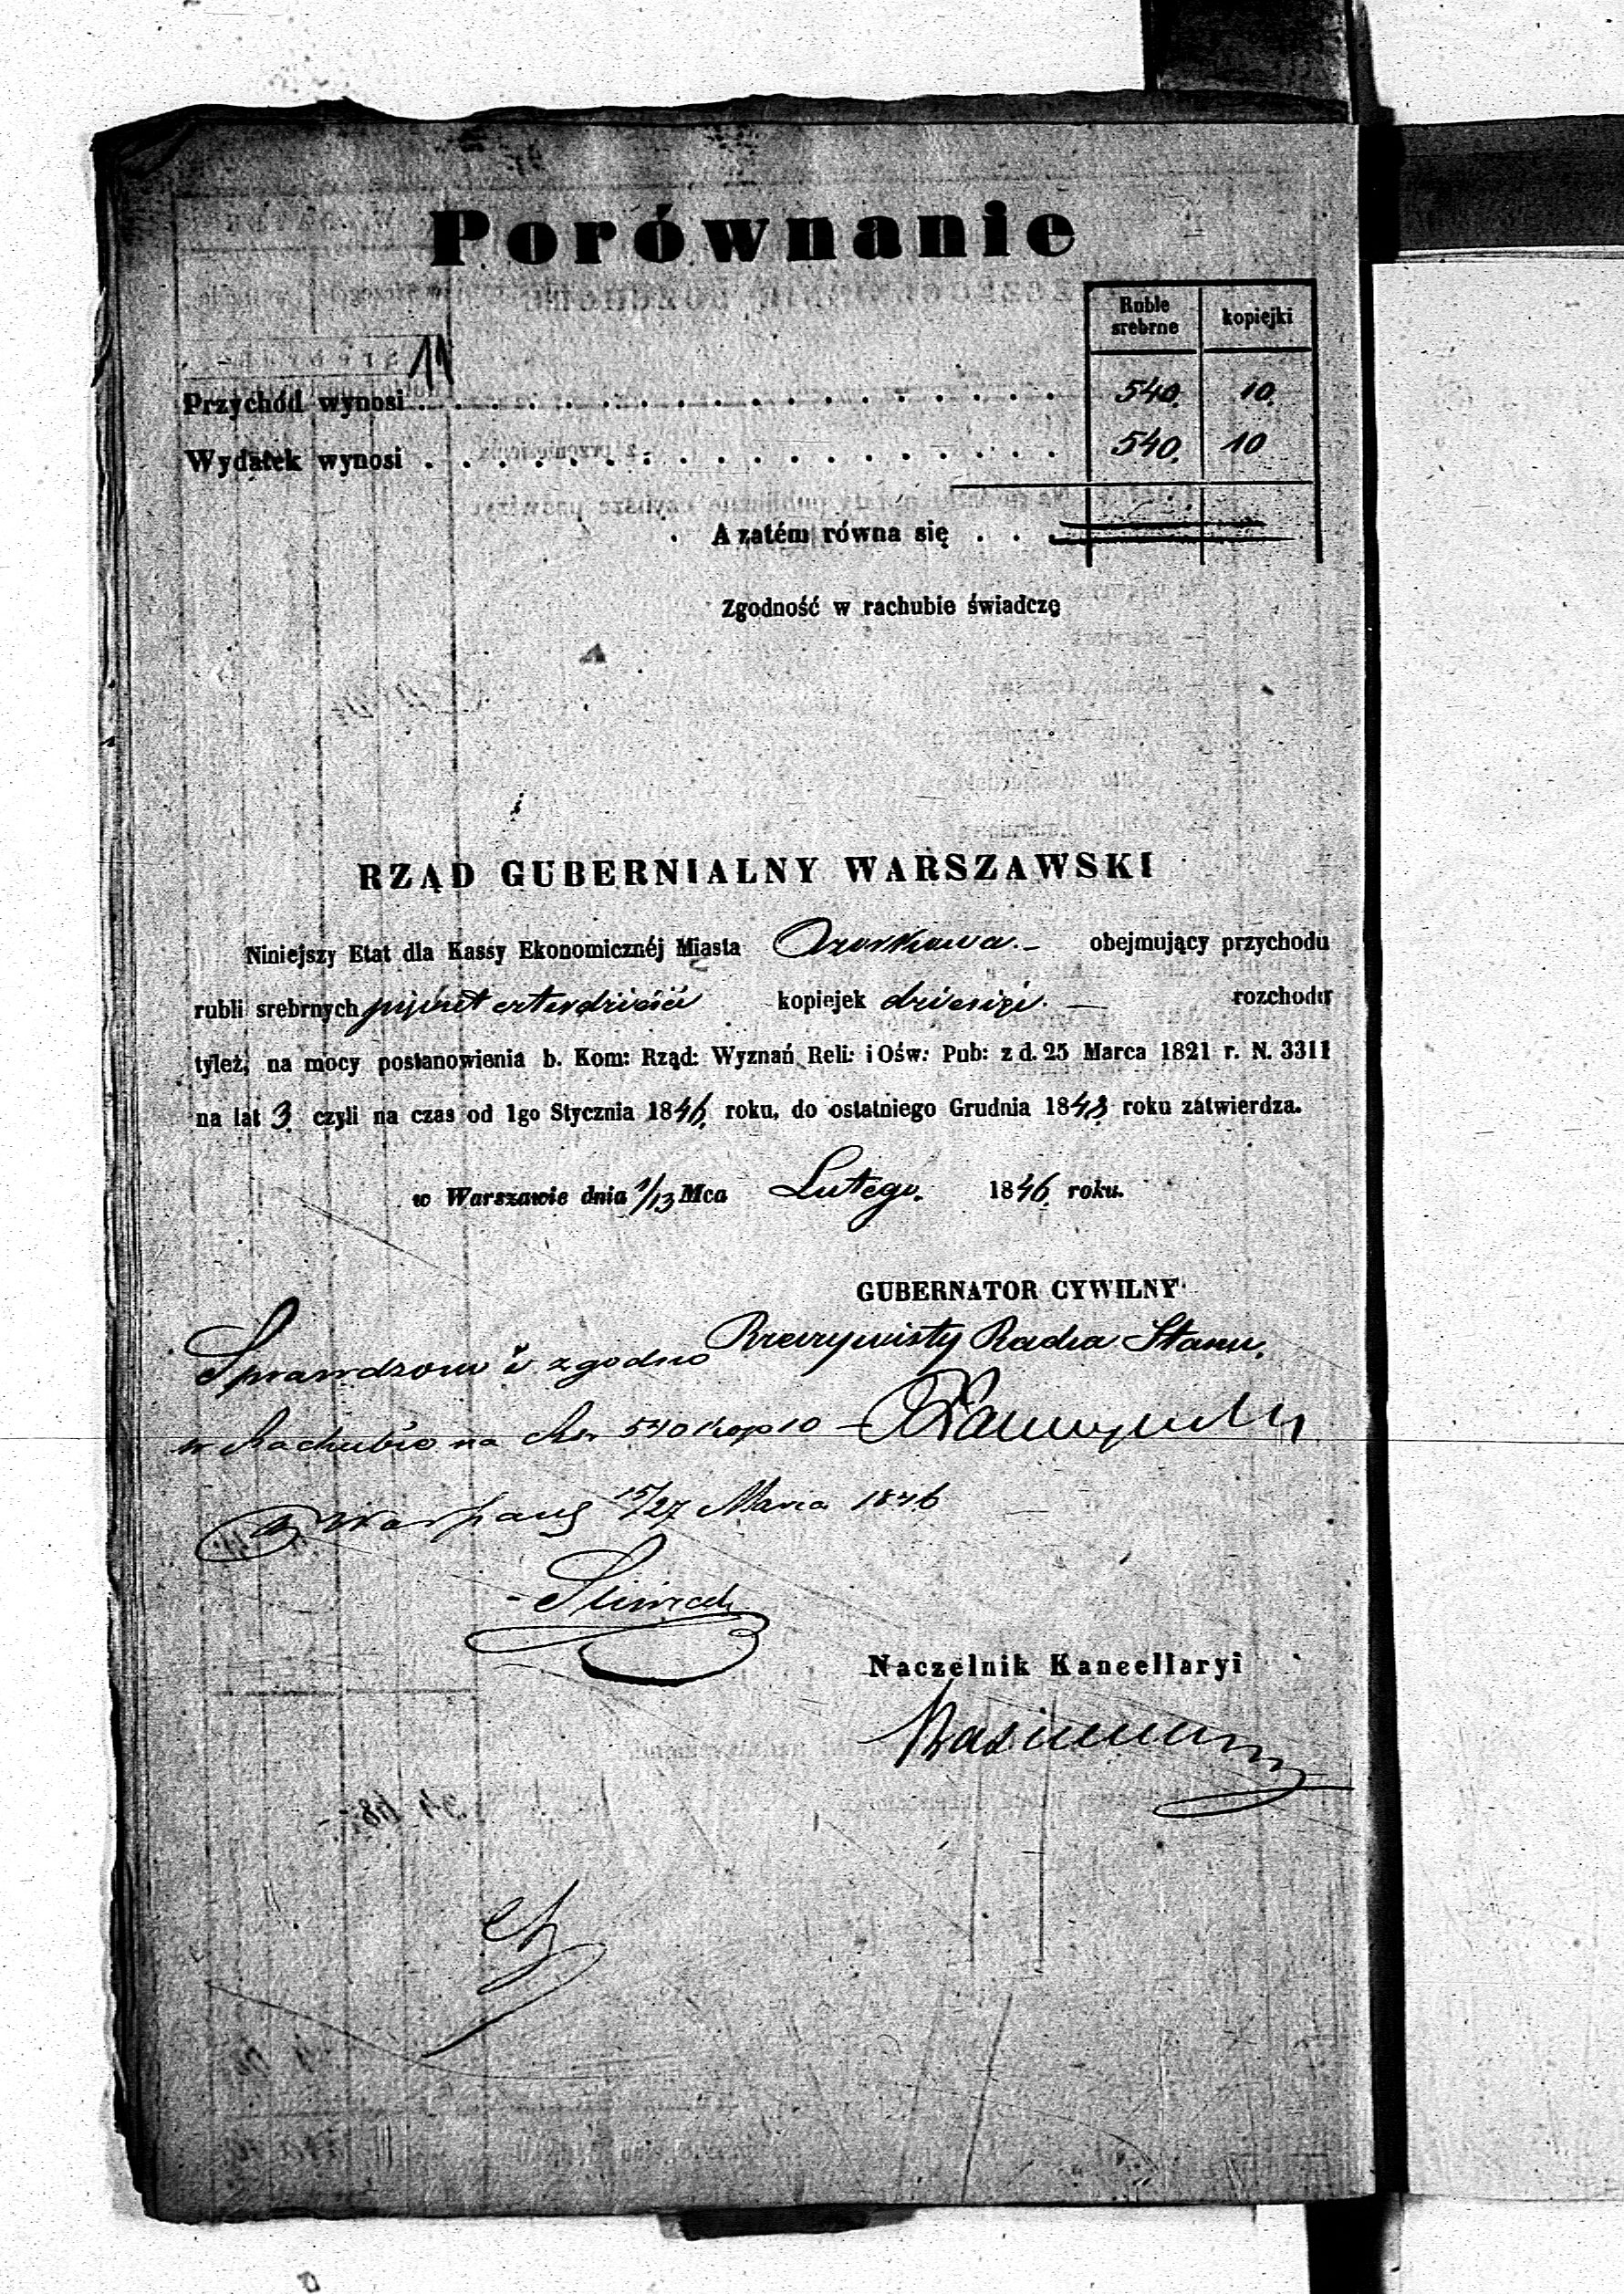 Porównanie
Ruble srebrne kopiejki
Przychód wynosi 540. 10.
Wydatek wynosi 540. 10
A zatém równa się
Zgodność w rachubie świadczę
RZĄD GUBERNIALNY WARSZAWSKI
Niniejszy Etat dla Kassy Ekonomicznéj Miasta Ozorkowa.- obejmujący przychodu
rubli srebrnych pięćset czterdzieści kopiejek dziesięć. — rozchodu
tyleż, na mocy postanowienia b. Kom: Rząd: Wyznań Reli: i Ośw: Pub: z d. 25 Marca 1821 r. N. 3311
na lat 3. czyli na czas od 1go Stycznia 1846. roku, do ostatniego Grudnia 1848 roku zatwierdza.
w Warszawie dnia 1/13 Mca Lutego. 1846. roku.
GUBERNATOR CYWILNY
Rzeczywisty Radca Stanu,
Sprawdzono i zgodno
w Rachubie na Rsr 540 kop 10 —
Warszawa 15/27 Marca 1846
Naczelnik Kancellaryi